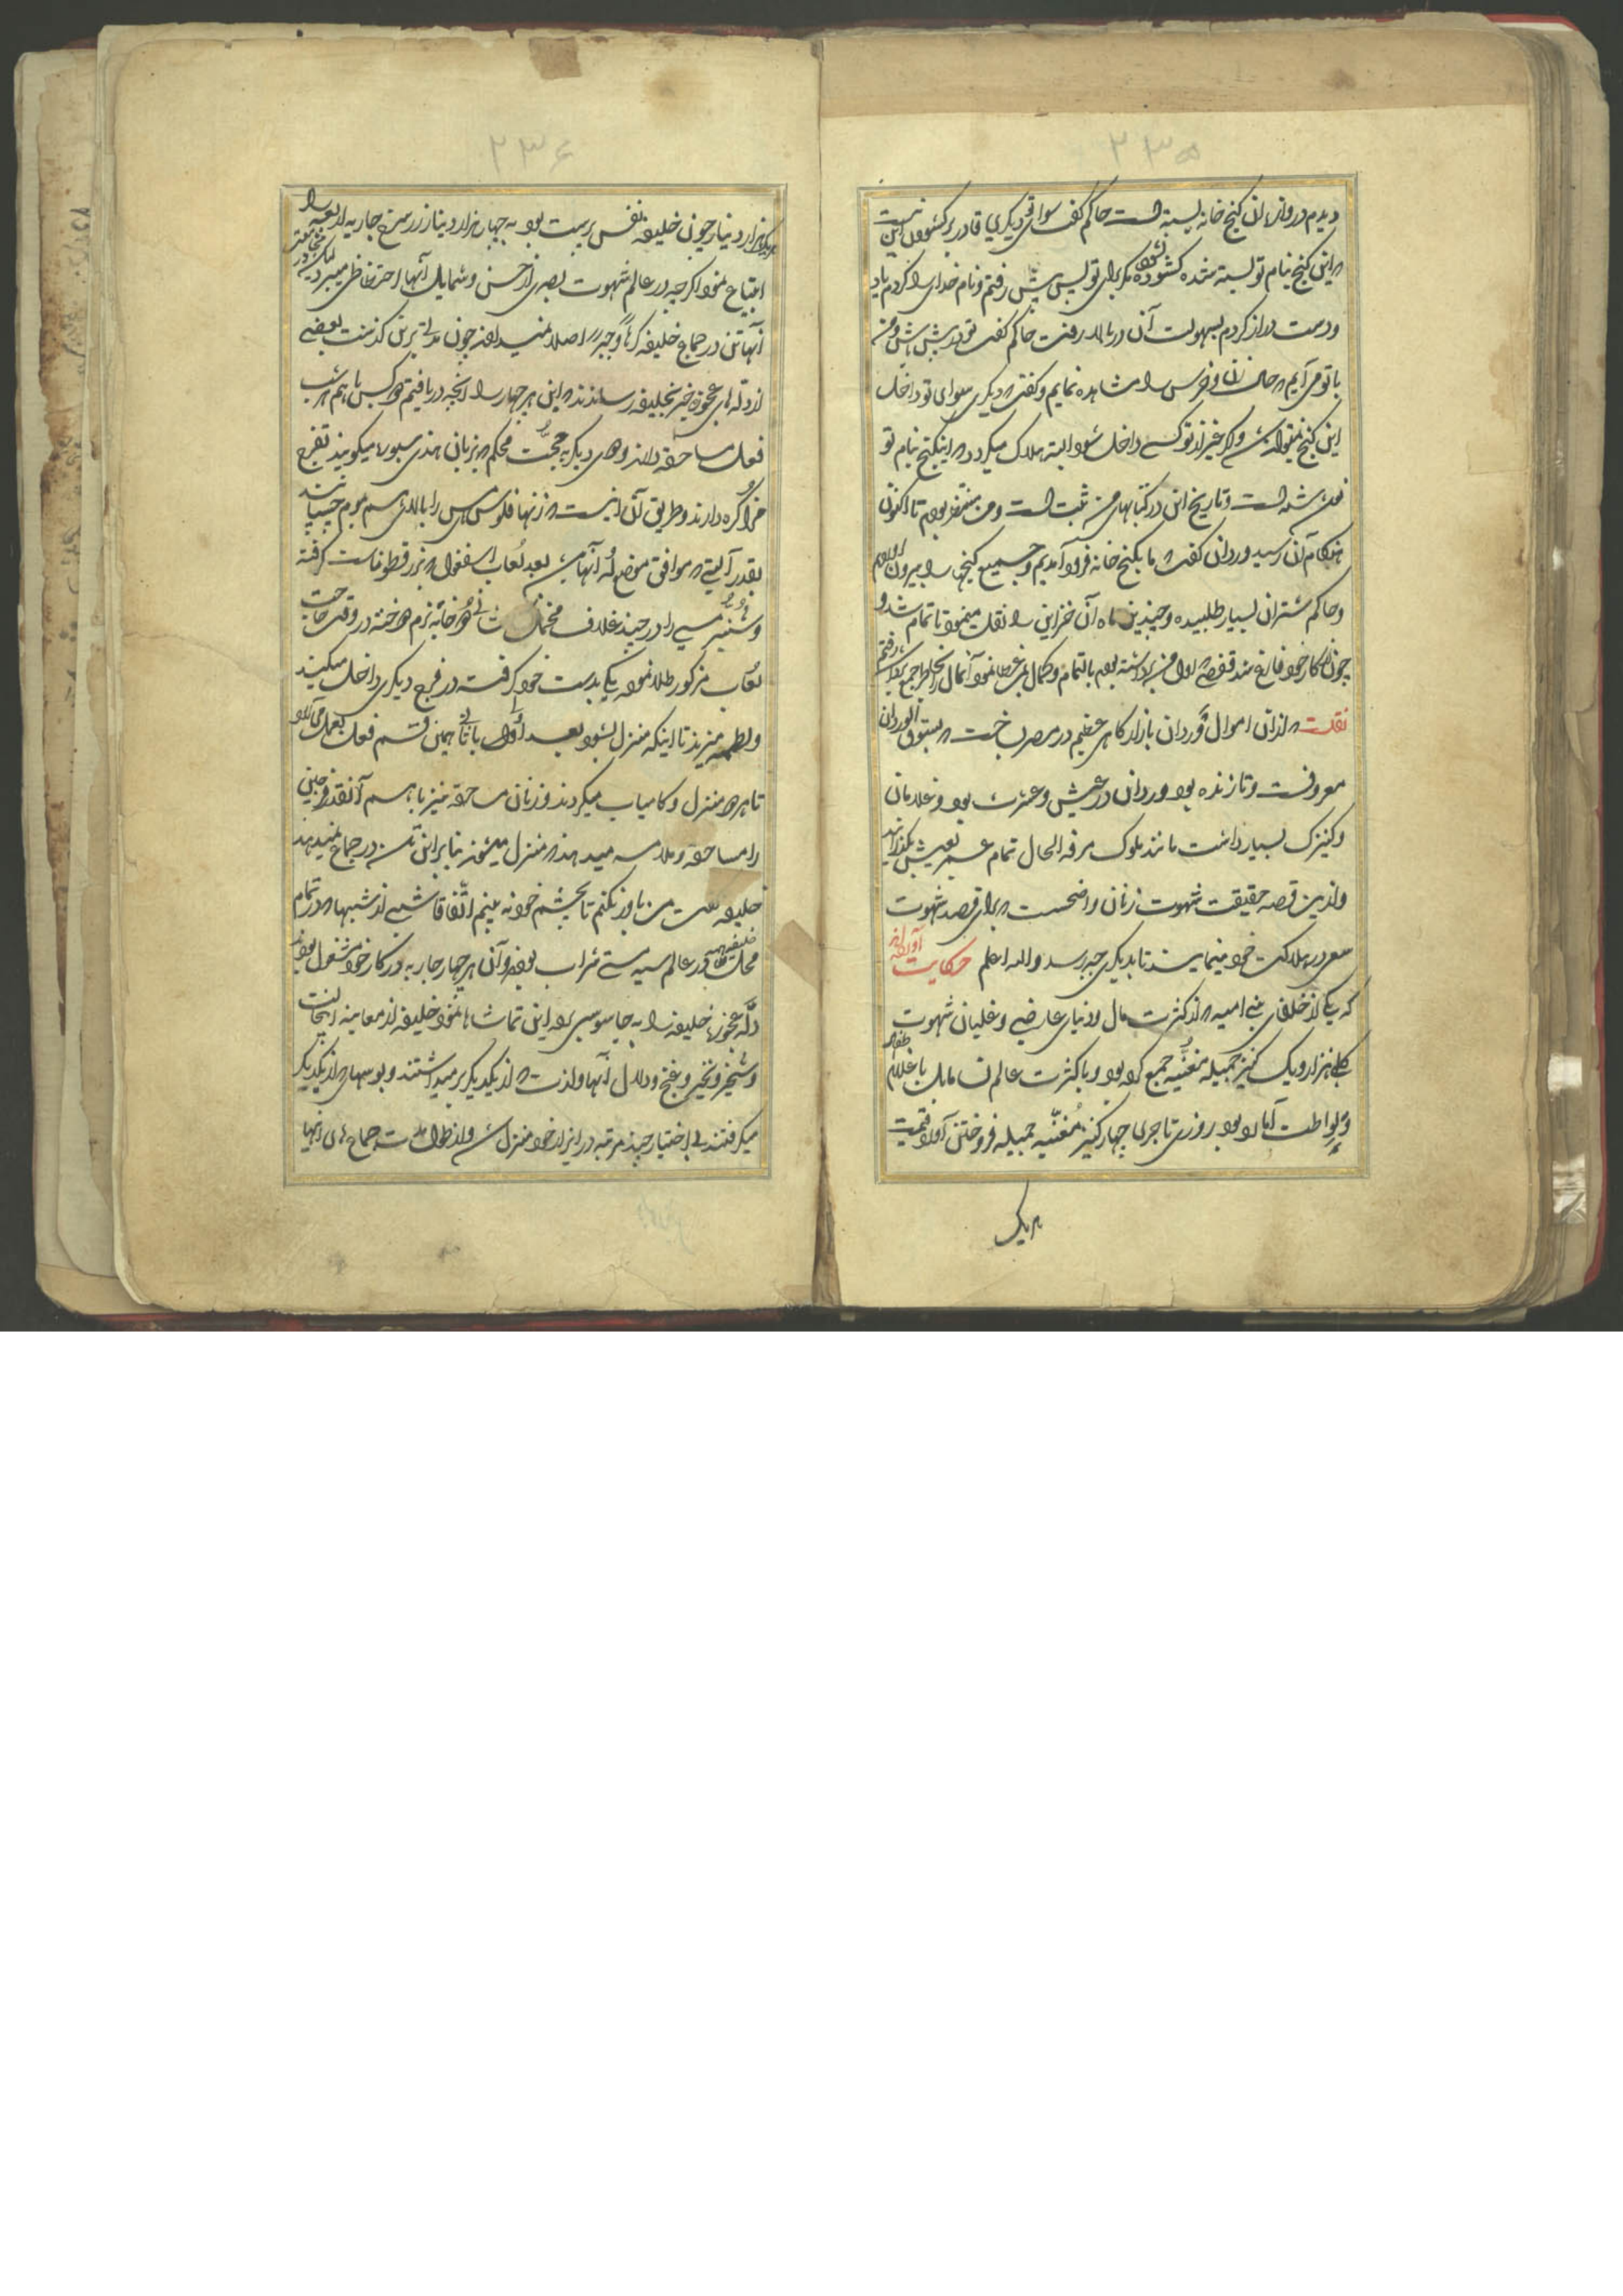 ۲۳۵
دیدم دروازه ان کنج خانه بسته است حاکم کفت سوای تو دیکری قادر بر کشودن این نیست
که این کنج بنام تو بسته شده کشوده نشود مکر برای تو پس پیش رفتم و نام خدای را کردم یاد
ودست دراز کردم بسهولت آن در بالا رفت حاکم کفت تو در پیش باش ومن
با تو می آیم که حال زن و فرس را مشاهده نمایم وکفت که دیکری سوای تو داخل
این کنج نمیتواند شد واکر غیر از تو کسے داخل شود البته هلاک میکردد که اینکنج بنام تو
نوشته است وتاریخ این در کتابهای من ثبت است ومن منتظر بودم تا اکنون
هنکام آن رسید وردان کفت که ما بکنج خانه فرود آمدیم وجمیع کنجها را بیرون آوردیم
وحاکم شتران بسیار طلبیده وچندین ماه آن خزاین را نقل مینمود تا تمام شد و
چون از کار خود فارغ شد قفصے که اول من برداشته بودم بالتمام وکمال بمن عطا نمود آنمال را بخاطر جمع برداشته رفتم
نقلست که از ان اموال وردان بازار کاهی عظیم در مصر ساخت که بسوق الوردان
معروفست وتا زنده بود وردان در عیش وعشرت بود وغلامان
وکنیزک بسیار داشت مانند ملوک مرفه الحال تمام عمر بعیش بکذرانید
واز ین قصه حقیقت شهوت زنان واضحست که برای قصد شهوت
سعی در هلاکت خود مینمایند تا بدیکری چه رسد والله اعلم حکایت آورده اند
که یکے از خلفای بنے امیه که از کثرت مال ودنیای عارضے وغلیان شهوت
بکلے هزار ویک کنیز جمیله مغنّیه جمع کرده بود وبا کثرت عالم نسا مایل با غلام ظهوری
وبلواطت آماده بود روزی تاجری چهار کنیز مغنّیه جمیله فروختن آورد قیمت
هریک
۲۳۶
هریک هزار دینار چون خلیفه نفس پرست بود به چهار هزار دینار زر سرخ جاریه اربعه را
ابتیاع نمود اکرچه در عالم شهوت بصری از حسن وشمایل آنها احتظاظی میبرد لیکن در مجامعت
آنها تن در جماع خلیفه کرهاً وجبراً اصلا نمیدادند چون مدتے برین کذشت بعضے
از دلّه های عجوزه خبر بخلیفه رساندند که این هر چهار را انچه دریافتیم هوکس با هم هر شب
فعل مساحقه دارند وهای دیکر به حجّت محکم که بزبان هندی سبوره میکویند تفرج
خود کره دارند وطریق آن اینست که زنها فلوس مس را بالای هم بموم چسبانند
بقدر آلتے که موافق موضع آنها باشد بعد لعاب اسفغول که بزر قطوناست کرفته
وسنبر مسے را در چند غلاف مخمل تا نے خانه نرم دوخته در وقت حاجت
لعاب مذکور طلا نموده یکے بدست خود کرفته در فرج دیکری داخل میکند
ولطمه میزند تا اینکه منزل بشود بعد اوّلے با ثانے همین قسم فعل بعمل می آورد
تا هردو منزل وکامیاب میکردند وزنان مساحقه نیز باهم آنقدر وجبین
را مساحقه وملامسه میدهند که منزل میشوند بنا بر این تن در جماع نمیدهند
خلیفه کفت من باور نکنم تا بچشم خود نه بینم اتّفاقا شبے از شبها که در تمام
محل خلیفه در عالم سیه مستے شراب بودند وآن هر چهار جاریه در کار خود مشغول بودند
دلّه عجوزه خلیفه را به جاسوسی برد این تماشا ها نمود خلیفه از معاینه اینحالت
وشخر ونخیر وغنج ودلال آنها ولذت که از یکدیکر برمیداشتند وبوسهای که از یکدیکر
میکرفتند بے اختیار چند مرتبه در ایزار خود منزل شد واز طول مدت جماع های انها